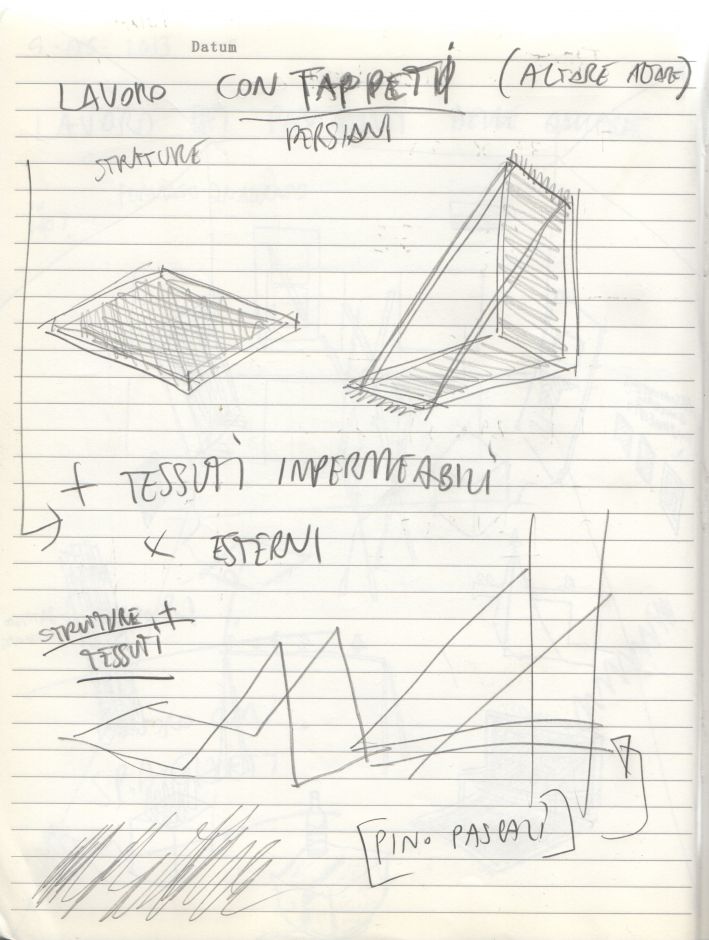 Datum
LAVORO CON TAPPETI (ALTARE ALTARE)
PERSIANI
STRATURE
+ TESSUTI IMPERMEABILI
X ESTERNI
STRUTTURE +
TESSUTI
[PINO PASCALI]